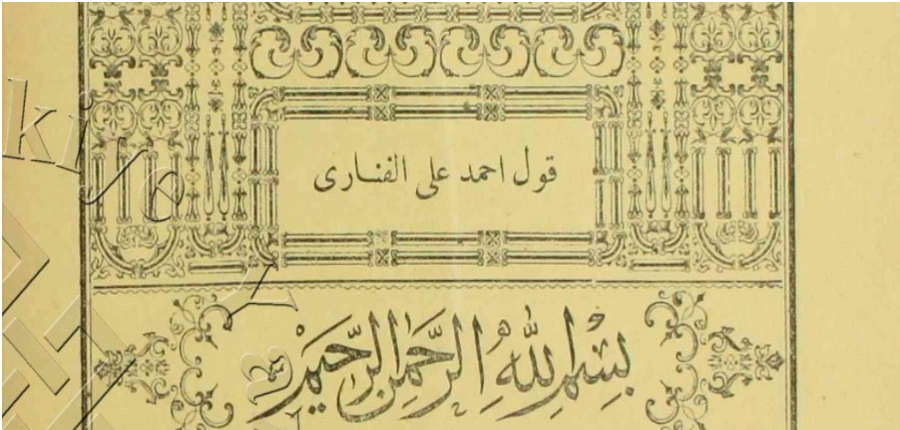 قول احمد على الفنارى
بِسْمِ اللهِ الرَّحْمٰنِ الرَّحِيْمِ